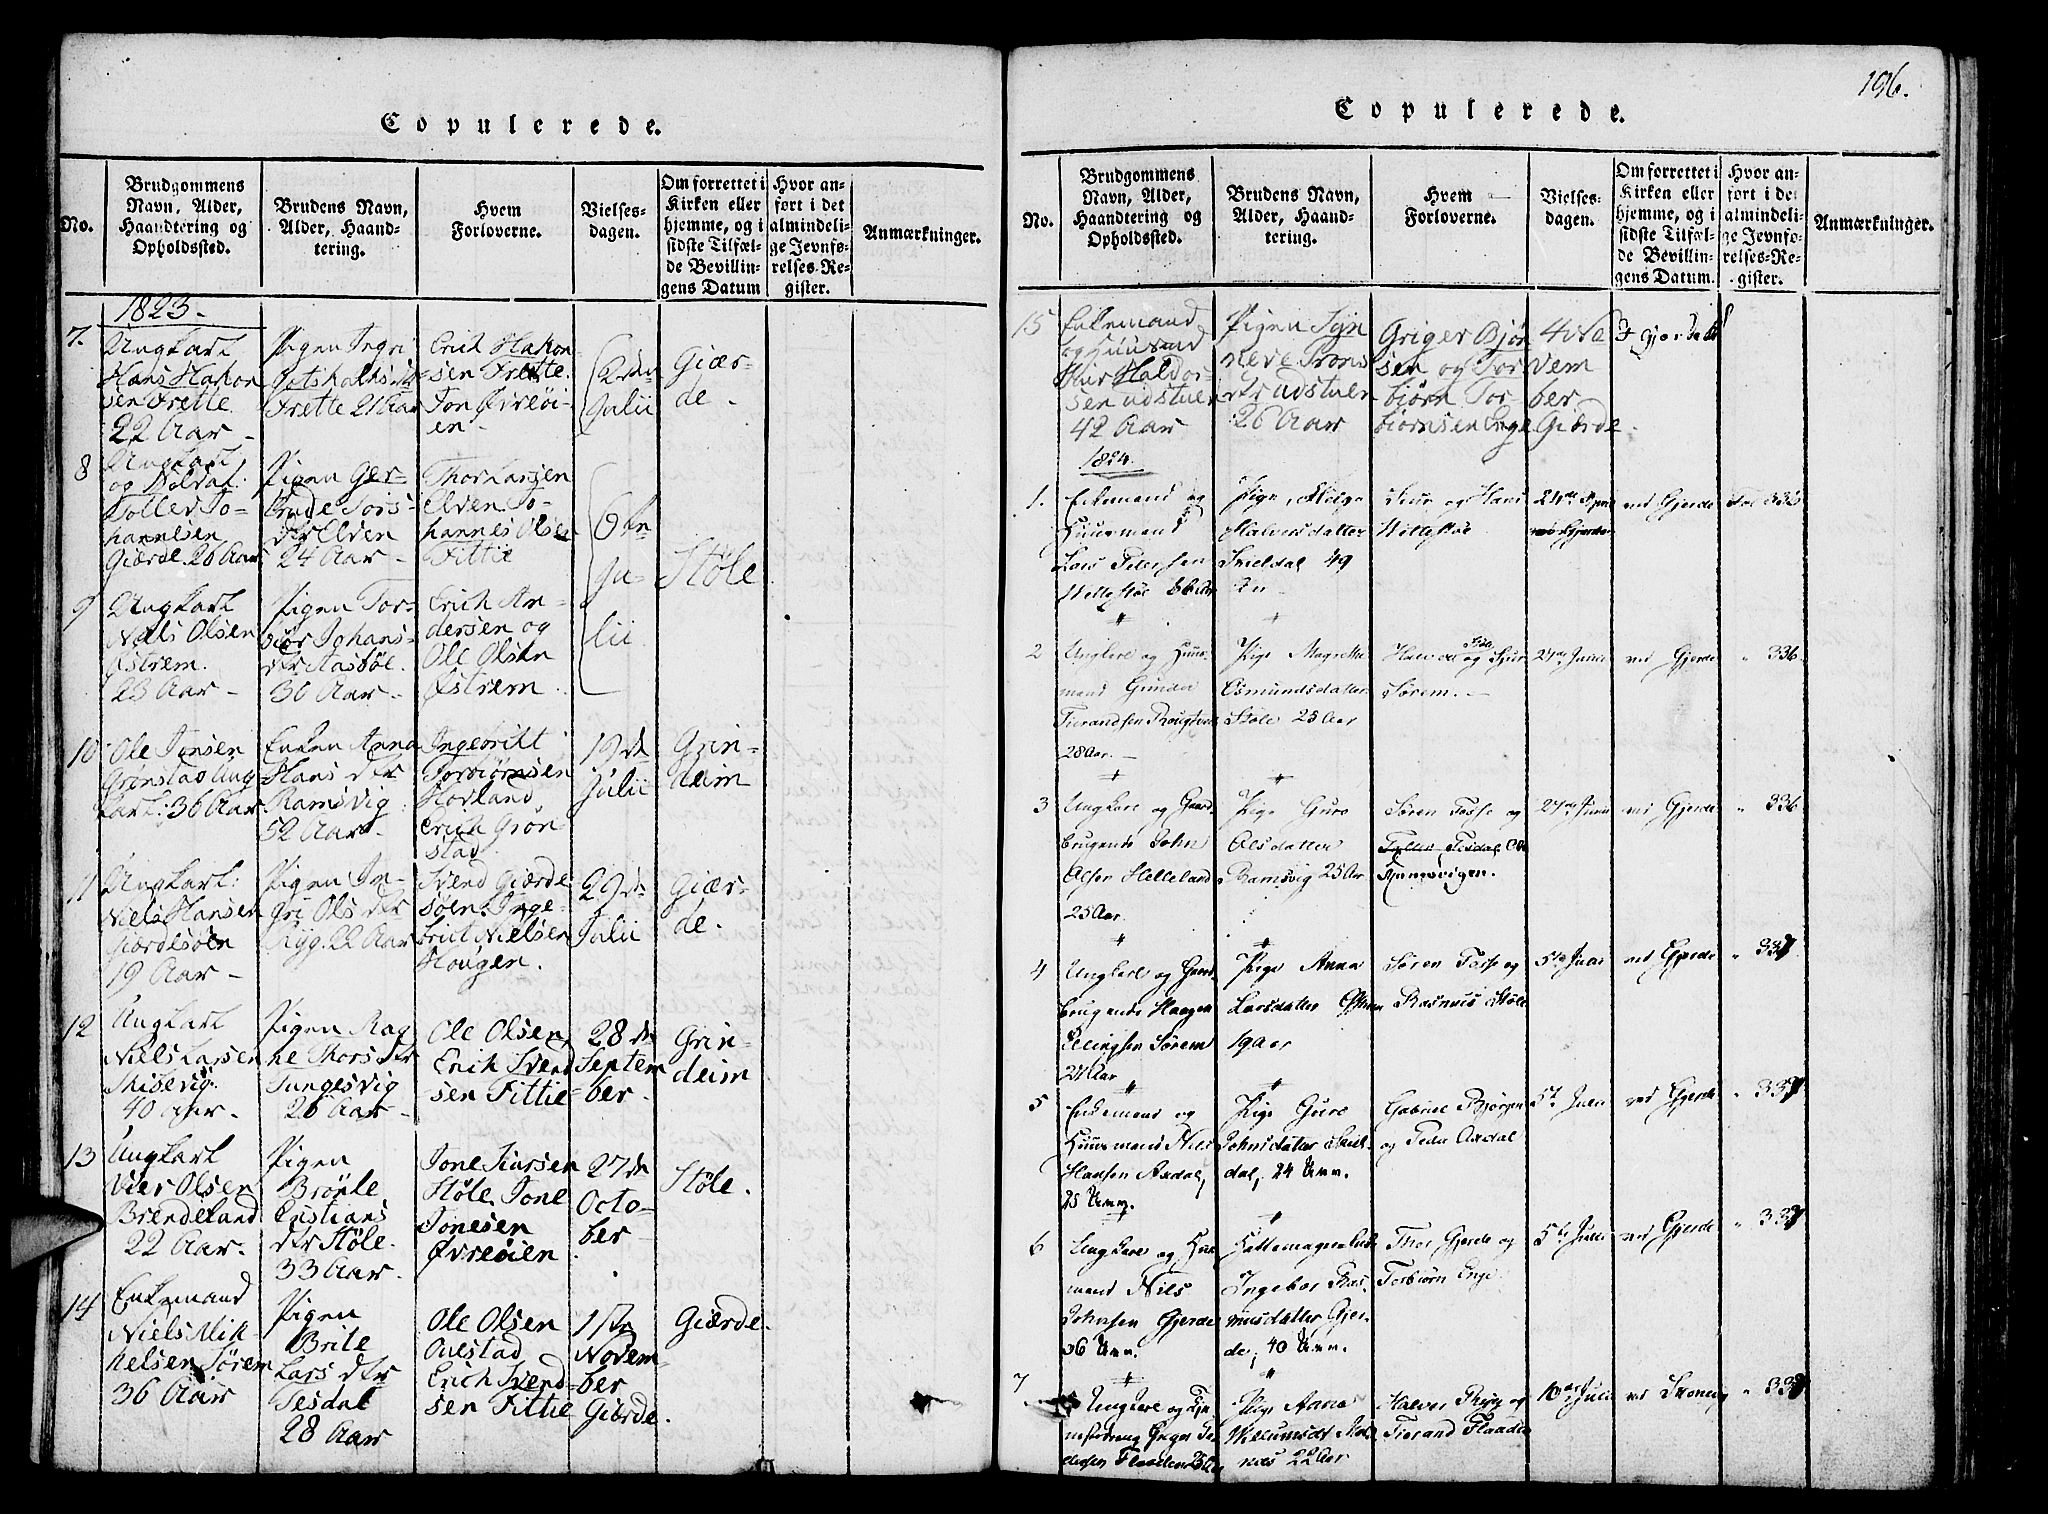 Copulerede.
No.
Brudgommens
Navn, Alder,
Haandtering og
Opholdssted.
Brudens Navn,
Alder, Haand-
tering.
Hvem
Forloverne.
Vielses-
dagen.
Om forrettet i
Kirken eller
hjemme, og i
sidste Tilfæl-
de Bevillin-
gens Datum
Hvor an-
ført i det
almindeli-
ge Jevnfø-
relses-Re-
gister.
Anmærkninger.
1823.
7.
Ungkarl
Hans Hakon
sen Frette
22 Aar
Pigen Ingri
Frette 21 Aar
Erich Hakon
sen Frette
Jon Øvreøi-
en
2den
Julii
Giær-
de.
8
Ungkarl
og Soldat
Tollev Jo-
hannesen
Giærde. 26 Aar
Pigen Ger-
trude Tors-
dtr Elven
24 Aar
Thor Larsen
Elven Jo-
hannes Olsen
Fittie
6te
Ju-
lii
Støle
9
Ungkarl
Niels Olsen
Østrem.
23 Aar
Pigen Tor-
biør Johans-
dtr Aasbøe.
30 Aar
Erich An-
dersen og
Ole Olsen
Østrem
10
Ole Jonsen
Grønstad Ung
karl: 36 Aar
Enken Anna
Hans dtr
Ramsvig
52 Aar
Ingebritt
Torbiørnsen
Hovland,
Erich Grøn
stad
19de
Julii
Grin-
deim
11
Ungkarl:
Niels Hansen
Giærdesøen
19 Aar
Pigen In-
gri Ols dtr
Ryg. 22 Aar
Svend Giærde
søen. Inge-
brict Nielsen
Hougen.
29de
Julii
Giær-
de.
12
Ungkarl
Niels Larsen
40 Aar
Pigen Rag
he Thors dtr
Tungesvig
26 Aar
Ole Olsen,
Erich Svend
sen Fittie
28de
Septem
ber
Grin-
deim
13
Ungkarl
Vier Olsen
Brendeland
22 Aar.
Pigen
Brønle
Cristians
dtr Støle.
33 Aar.
Jone Siursen
Støle Jone
Jonesen
Øvreøien
27de
Octo-
ber
Støle.
14
Enkemand
Niels Mik-
kelsen Sørem
36 Aar
Pigen
Brite
Lars dtr
Tesdal
28 Aar
Ole Olsen
Ouestad
Erich Svend
sen Fittie
1ste
Novem-
ber
Giærde.
Giærde.
196.
Copulerede.
No.
Brudgommens
Navn, Alder,
Haandtering og
Opholdssted.
Brudens Navn,
Alder, Haand-
tering.
Hvem
Forloverne.
Vielses-
dagen.
Om forrettet i
Kirken eller
hjemme, og i
sidste Tilfæl-
de Bevillin-
gens Datum.
Hvor an-
ført i det
almindeli-
ge Jevnfø-
relses-Re-
gister.
Anmærkninger.
15
Enkemand
og Huusmd
Siur Haldor-
sen Udstuen
42 Aar
Pigen Syn
neve Trons
dtr Udstuen
26 Aar
Griger Bjør
sen og Tor
biørn Tor-
biørnsen Enge
4de No
vem
ber
Giærde.
1824.
1.
Enkemand og
Huusmand
Lars Petersen
Pige Helge
Halversdatter
Skieldal 49
Aar
Siur og Hans
24de April
ved Gjerde
ved Gjerde
Fol 336
2
Ungkarl og Huus-
mand Gunder
28 Aar.
Pige Magrethe
Osmundsdatter
Støle 25 Aar
og Siur
Sørem.
24de Junii
ved Gjerde
" 336
3
Ungkarl og Gaard
brugende John
Olsen Helleland
25 Aar.
Pige Guro
Olsdatter
Ramsvig 25 Aar
Søren Tosse og
Ramsvigen.
27de Junii
ved Gjerde
" 336
4
Ungkarl og Gaard
brugende Haagen
Ellingsen Sørem
21 Aar
Pige Anna
Larsdatter
19 Aar
Søren Tosse og
Rasmus Støle
5te Julii
ved Gjerde
" 337
5
Enkemand og
Huusmand Nils
Hansen Axdal,
25 Aar.
Pige Guro
Johnsdatter Skiel-
dal, 24 Aar.
Gabriel Bjørgen
og Peder Axdal
5te Julii
ved Gjerde
" 337
6
Ungkarl og Huus
mand Nils
Johnsen Gjerde
36 Aar.
Ingebor Ras-
musdatter Gjer-
de, 40 Aar.
Thor Gjerde og
Torbiørn Enge
5te Julii
ved Gjerde
" 337
7
Ungkarl og
Pige Anna
22 Aar
Halver Ryg og
Tierand Flaaden
10de Julii
" 337